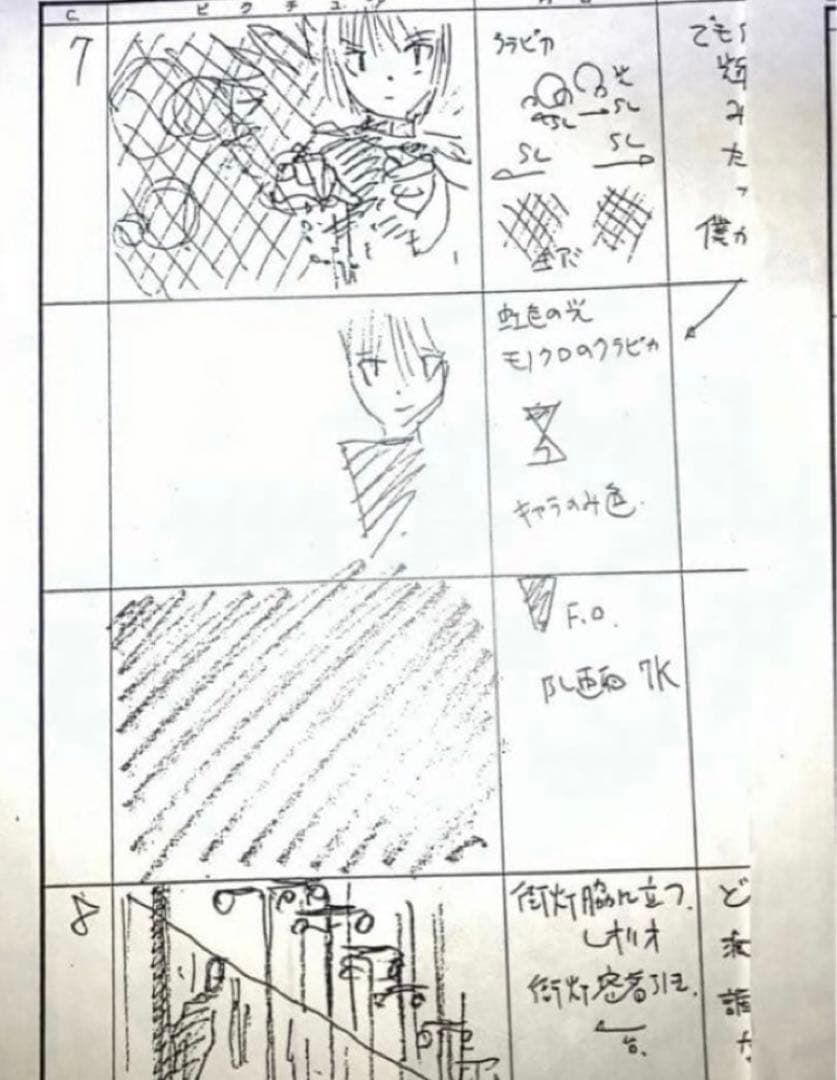 C.
ピクチュア
7
クラピカ
光
SL
SL
SL
SL
でも
み
た
っ
僕が
虹色の光
モノクロのクラピカ
キャラのみ色.
F.O.
BL画面 7K
8
街灯脇に立つ.
レオリオ
街灯密着引き.
ど